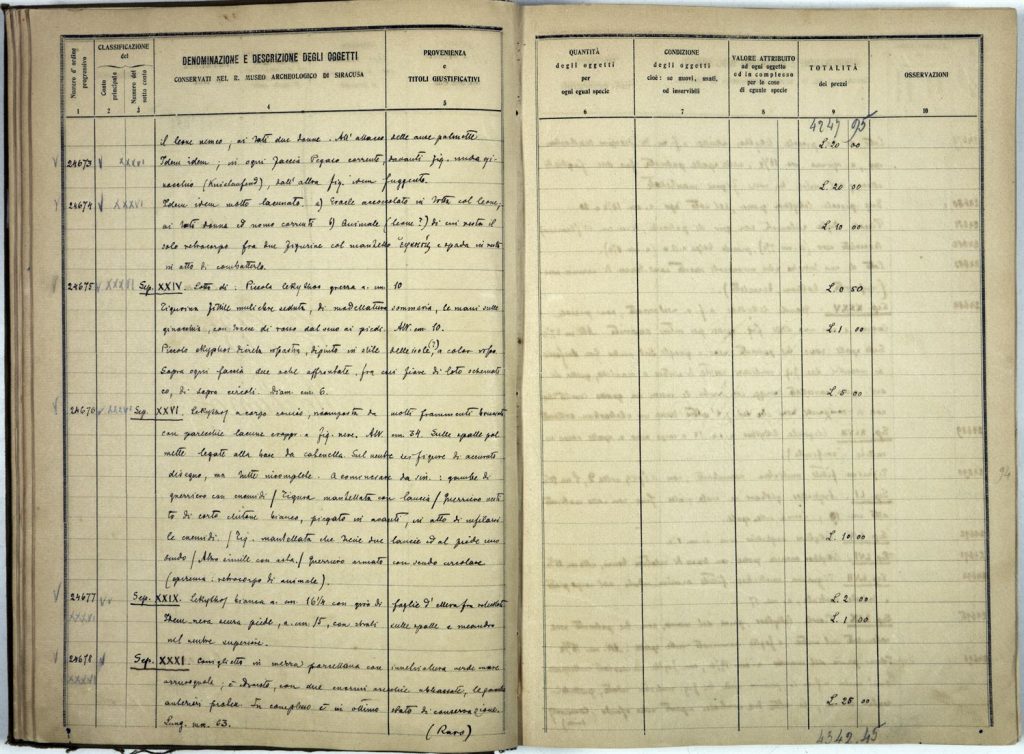 Numero d'ordine progressivo
CLASSIFICAZIONE
del
Conto principale
Numero del sotto conto
DENOMINAZIONE E DESCRIZIONE DEGLI OGGETTI
CONSERVATI NEL R. MUSEO ARCHEOLOGICO DI SIRACUSA
PROVENIENZA
e
TITOLI GIUSTIFICATIVI
1 2 3 4 5
il leone nemeo, ai lati due donne. All' attacco delle anse palmette
24673 XXXVI Idem idem; in ogni faccia Pegaso corrente, davanti fig. nuda gi-
nocchio (Knielaufend), dall' altra fig. idem fuggente.
24674 XXXVI Idem idem molto lacunato. a) Eracle in lotta col leone,
ai lati donna ed uomo correnti b) Animale (leone?) di cui resta il
solo retrocorpo fra due figurine col mantello e spada in
in atto di combatterlo.
24675 XXXVI Sep. XXIV. Lotto di: Piccola lekythos grezza a. cm. 10
Figurina fittile muliebre seduta, di modellatura sommaria, le mani sulle
ginocchia, con tracce di rosso dal seno ai piedi. Alt. cm. 10.
Piccolo skyphos dipinto in stile delle isole(?) a color
Sopra ogni faccia due affrontate, fra fiore di loto schemat
co, di sopra circoli. Diam. cm. 6.
24676 XXXVI Sep. XXVI. Lekythos a corpo conico, ricomposta da molti frammenti
con parecchie lacune a fig. nere. Alt. cm. 34. Sulle spalle pal
mette legate alla base da catenella. Sul ventre sei figure di accurato
disegno, ma tutte incomplete. A cominciare da sin.: gambe di
guerriero con cnemidi / Figura mantellata con lancia / Guerriero
to di corto chitone bianco, piegato in avanti, in atto di infilarsi
le cnemidi. / Fig. mantellata che tiene due lancie ed al piede uno
scudo / Altra simile con asta. / Guerriero armato con scudo circolare
(episema: retrocorpo di animale).
24677 XXXVI Sep. XXIX. Lekythos bianca a. cm. 16½ con giro di foglie d' ellera fra
Idem nera senza piede, a. cm. 15, con strali sulle spalle e meandro
nel ventre superiore.
24678 XXXVI Sep. XXXI. Coniglietto in mezza porcellana con verde mare
; è con due enormi orecchie abbassate, le gambe
anteriori In complesso è in ottimo stato di conservazione.
Lung. mm. 63. (Raro)
QUANTITÀ
degli oggetti
per
ogni egual specie
CONDIZIONE
degli oggetti
cioè: se nuovi, usati,
od inservibili
VALORE ATTRIBUITO
ad ogni oggetto
od in complesso
per le cose
di eguale specie
TOTALITÀ
dei prezzi
OSSERVAZIONI
6 7 8 9 10
4247 95
L. 20 00
L. 20 00
L. 10 00
L. 0 50
L. 1 00
L. 5 00
L. 10 00
L. 2 00
L. 1 00
L. 25 00
4342.45
94